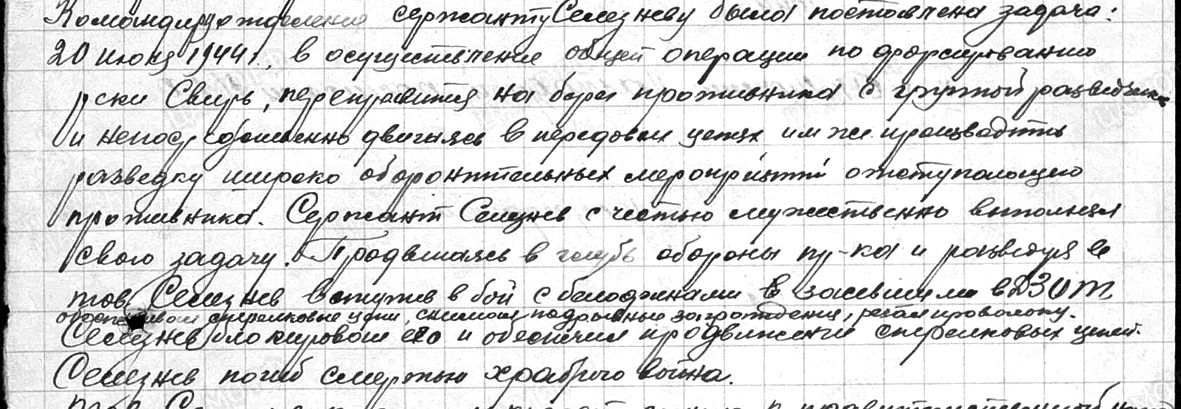 Командиру отделения сержанту Селезневу была поставлена задача:
20 июня 1944 г. в осуществление общей операции по форсированию
реки Свирь, переправится на берег противника с группой разведчик
и непосредственно двигаясь в передовых цепях им же производить
разведку широко оборонительных мероприятий отступающего
противника. Сержант Селезнев с честью мужественно выполнял
свою задачу. Продвигаясь в глубь обороны пр-ка и разведуя ее
тов. Селезнев вступив в бой с белофинами засевшими в ДЗОТ
стрелковые цепи, снимал подрывные заграждения, резал проволоку.
Селезнев блокировал его и обеспечил продвижение стрелковых цепей.
Селезнев погиб смертью храброго война.